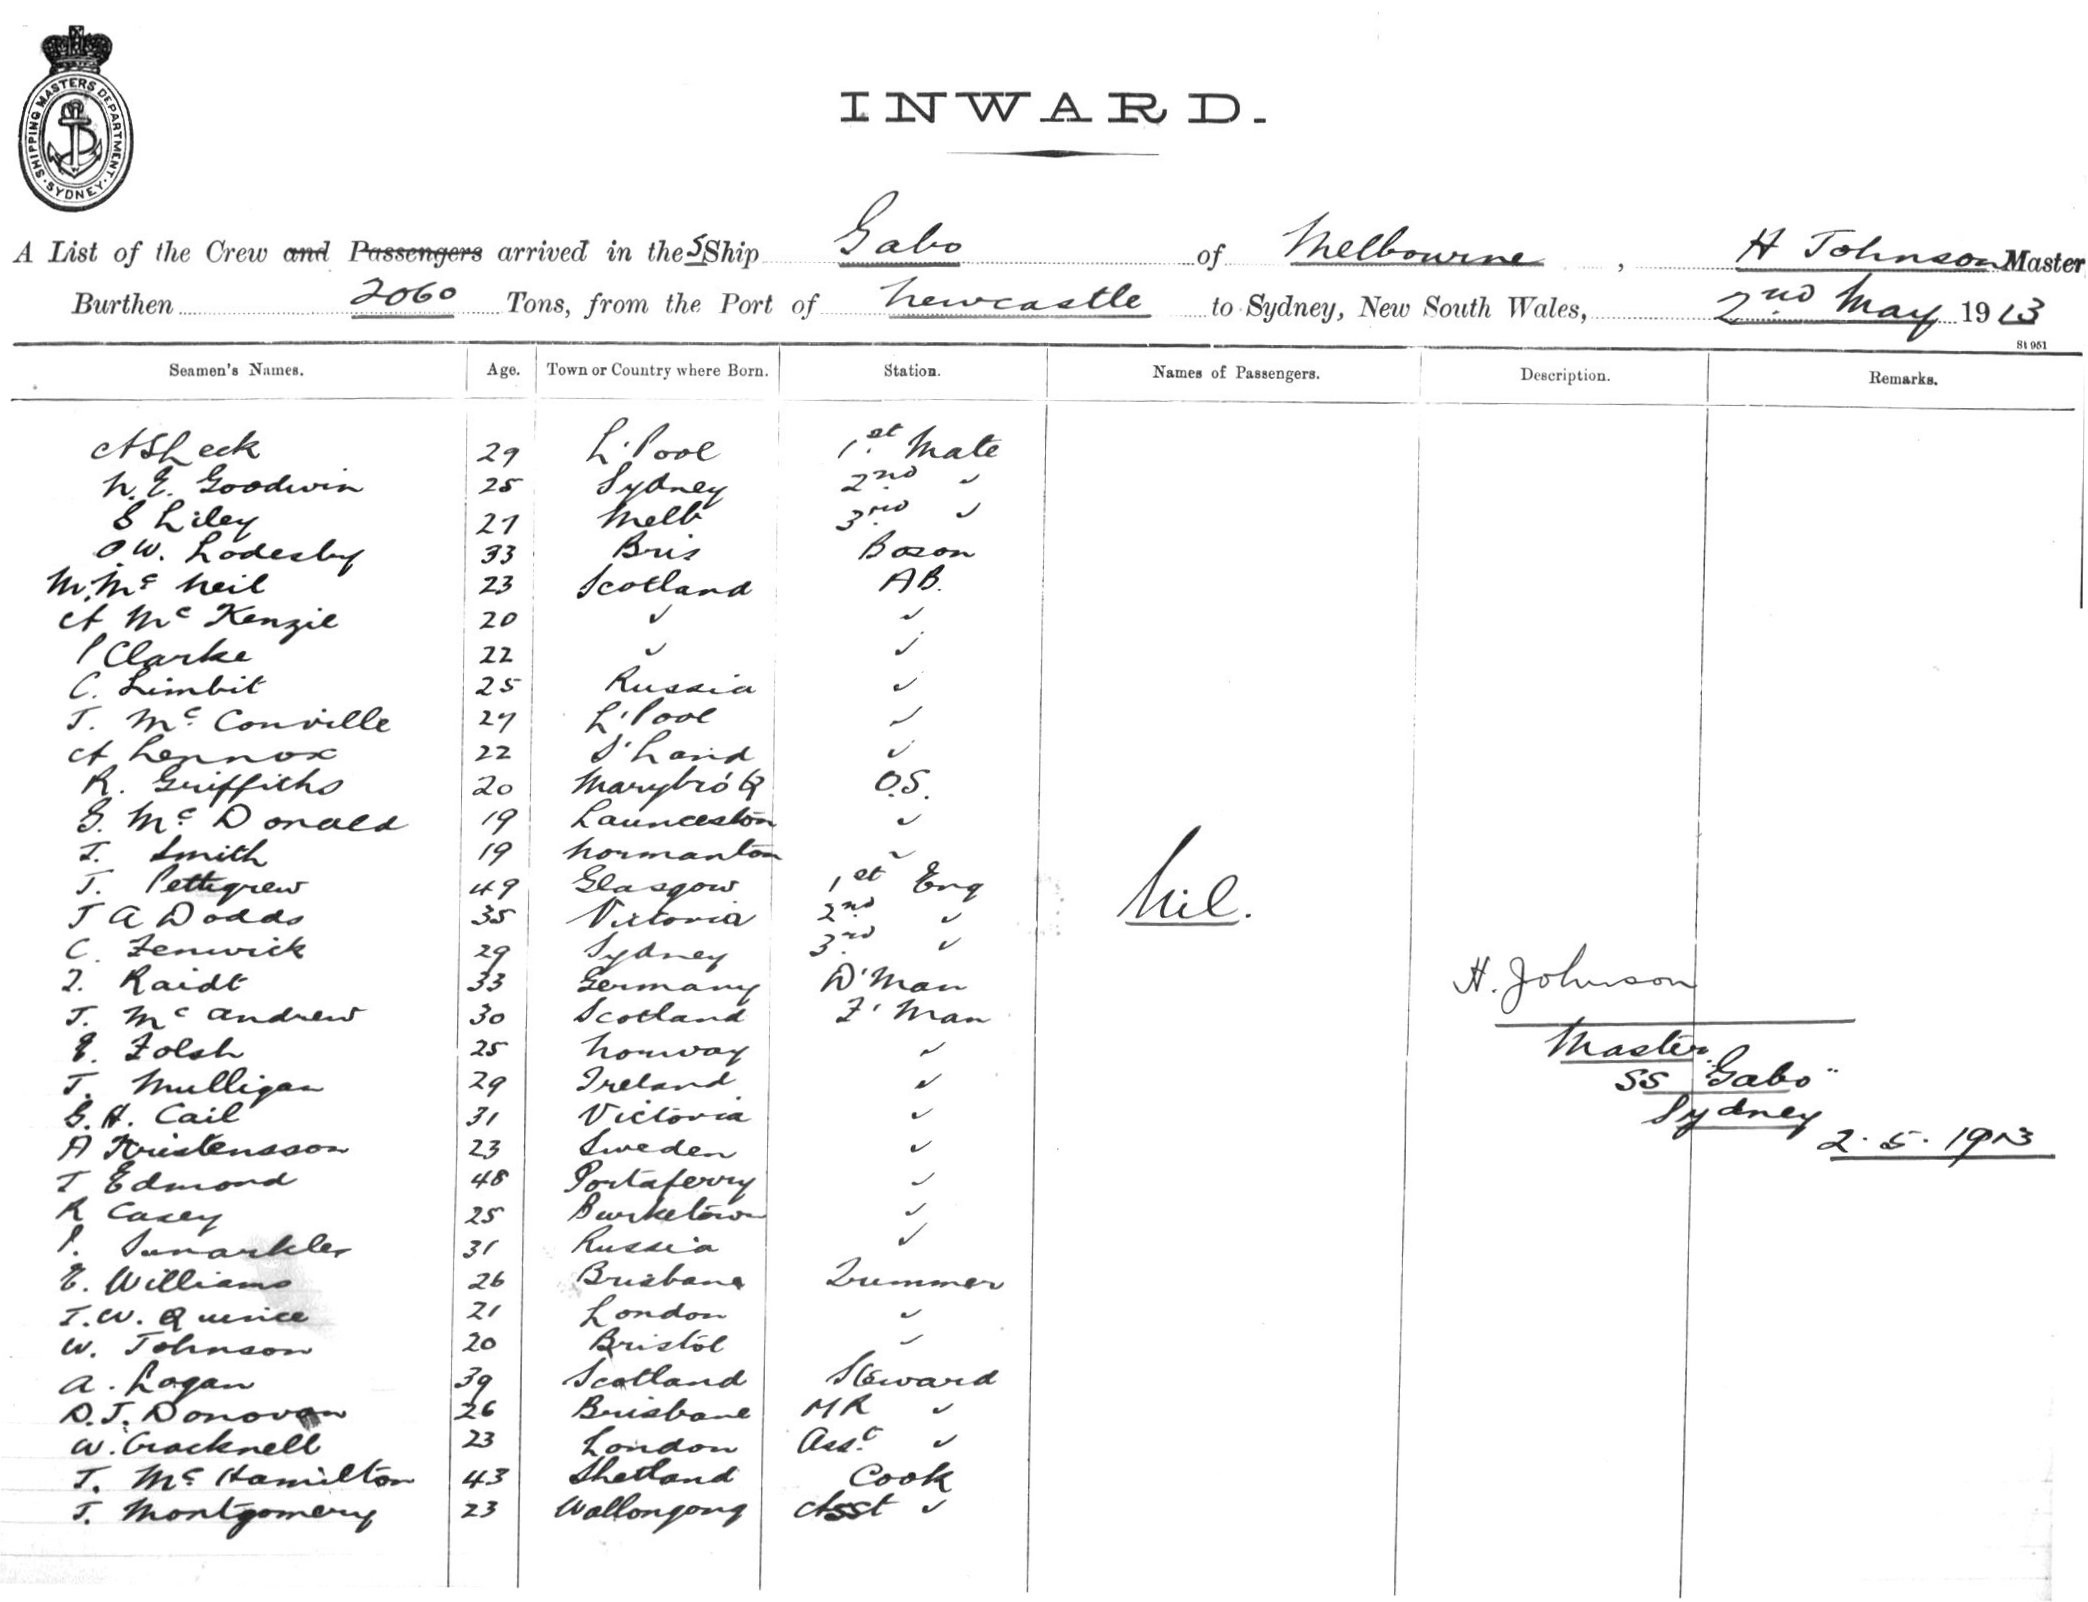 SHIPPING MASTERS DEPARTMENT. SYDNEY.
INWARD.
A List of the Crew and Passengers arrived in the SShip Gabo of Melbourne, H Johnson Master
Burthen 2060 Tons, from the Port of Newcastle to Sydney, New South Wales, 2nd May 1913
St 951
Seamen's Names. Age. Town or Country where Born. Station. Names of Passengers. Description. Remarks.
A S Leck 29 L'Pool 1st Mate
N. E. Goodwin 25 Sydney 2nd "
S Liley 27 Melb 3rd "
O.W. Lodesby 33 Bris Boson
M. Mc Neil 23 Scotland AB.
A Mc Kenzie 20 " "
P Clarke 22 " "
C. Limbit 25 Russia "
J. Mc Conville 27 L'Pool "
A Lennox 22 S'Land "
R. Griffiths 20 Marybro' Q O.S.
G. Mc Donald 19 Launceston "
J. Smith 19 Normanton "
J. Pettigrew 49 Glasgow 1st Eng
J A Dodds 35 Victoria 2nd "
C. Fenwick 29 Sydney 3rd "
Raidt 33 Germany D'Man
J. Mc Andrew 30 Scotland F'Man
E. Folsh 25 Norway "
J. Mulligan 29 Ireland "
G. H. Cail 31 Victoria "
A Kristensson 23 Sweden "
J Edmond 48 Portaferry "
R Casey 25 Burketown "
P. 31 Russia "
E. Williams 26 Brisbane Trimmer
J. W. Quince 21 London "
W. Johnson 20 Bristol "
A. Logan 39 Scotland Steward
D. J. Donovan 26 Brisbane MR "
W. Cracknell 23 London Asst "
J. Mc Hamilton 43 Shetland Cook
J. Montgomery 23 Wollongong Asst "
Nil.
H. Johnson
Master.
SS "Gabo"
Sydney
2. 5. 1913